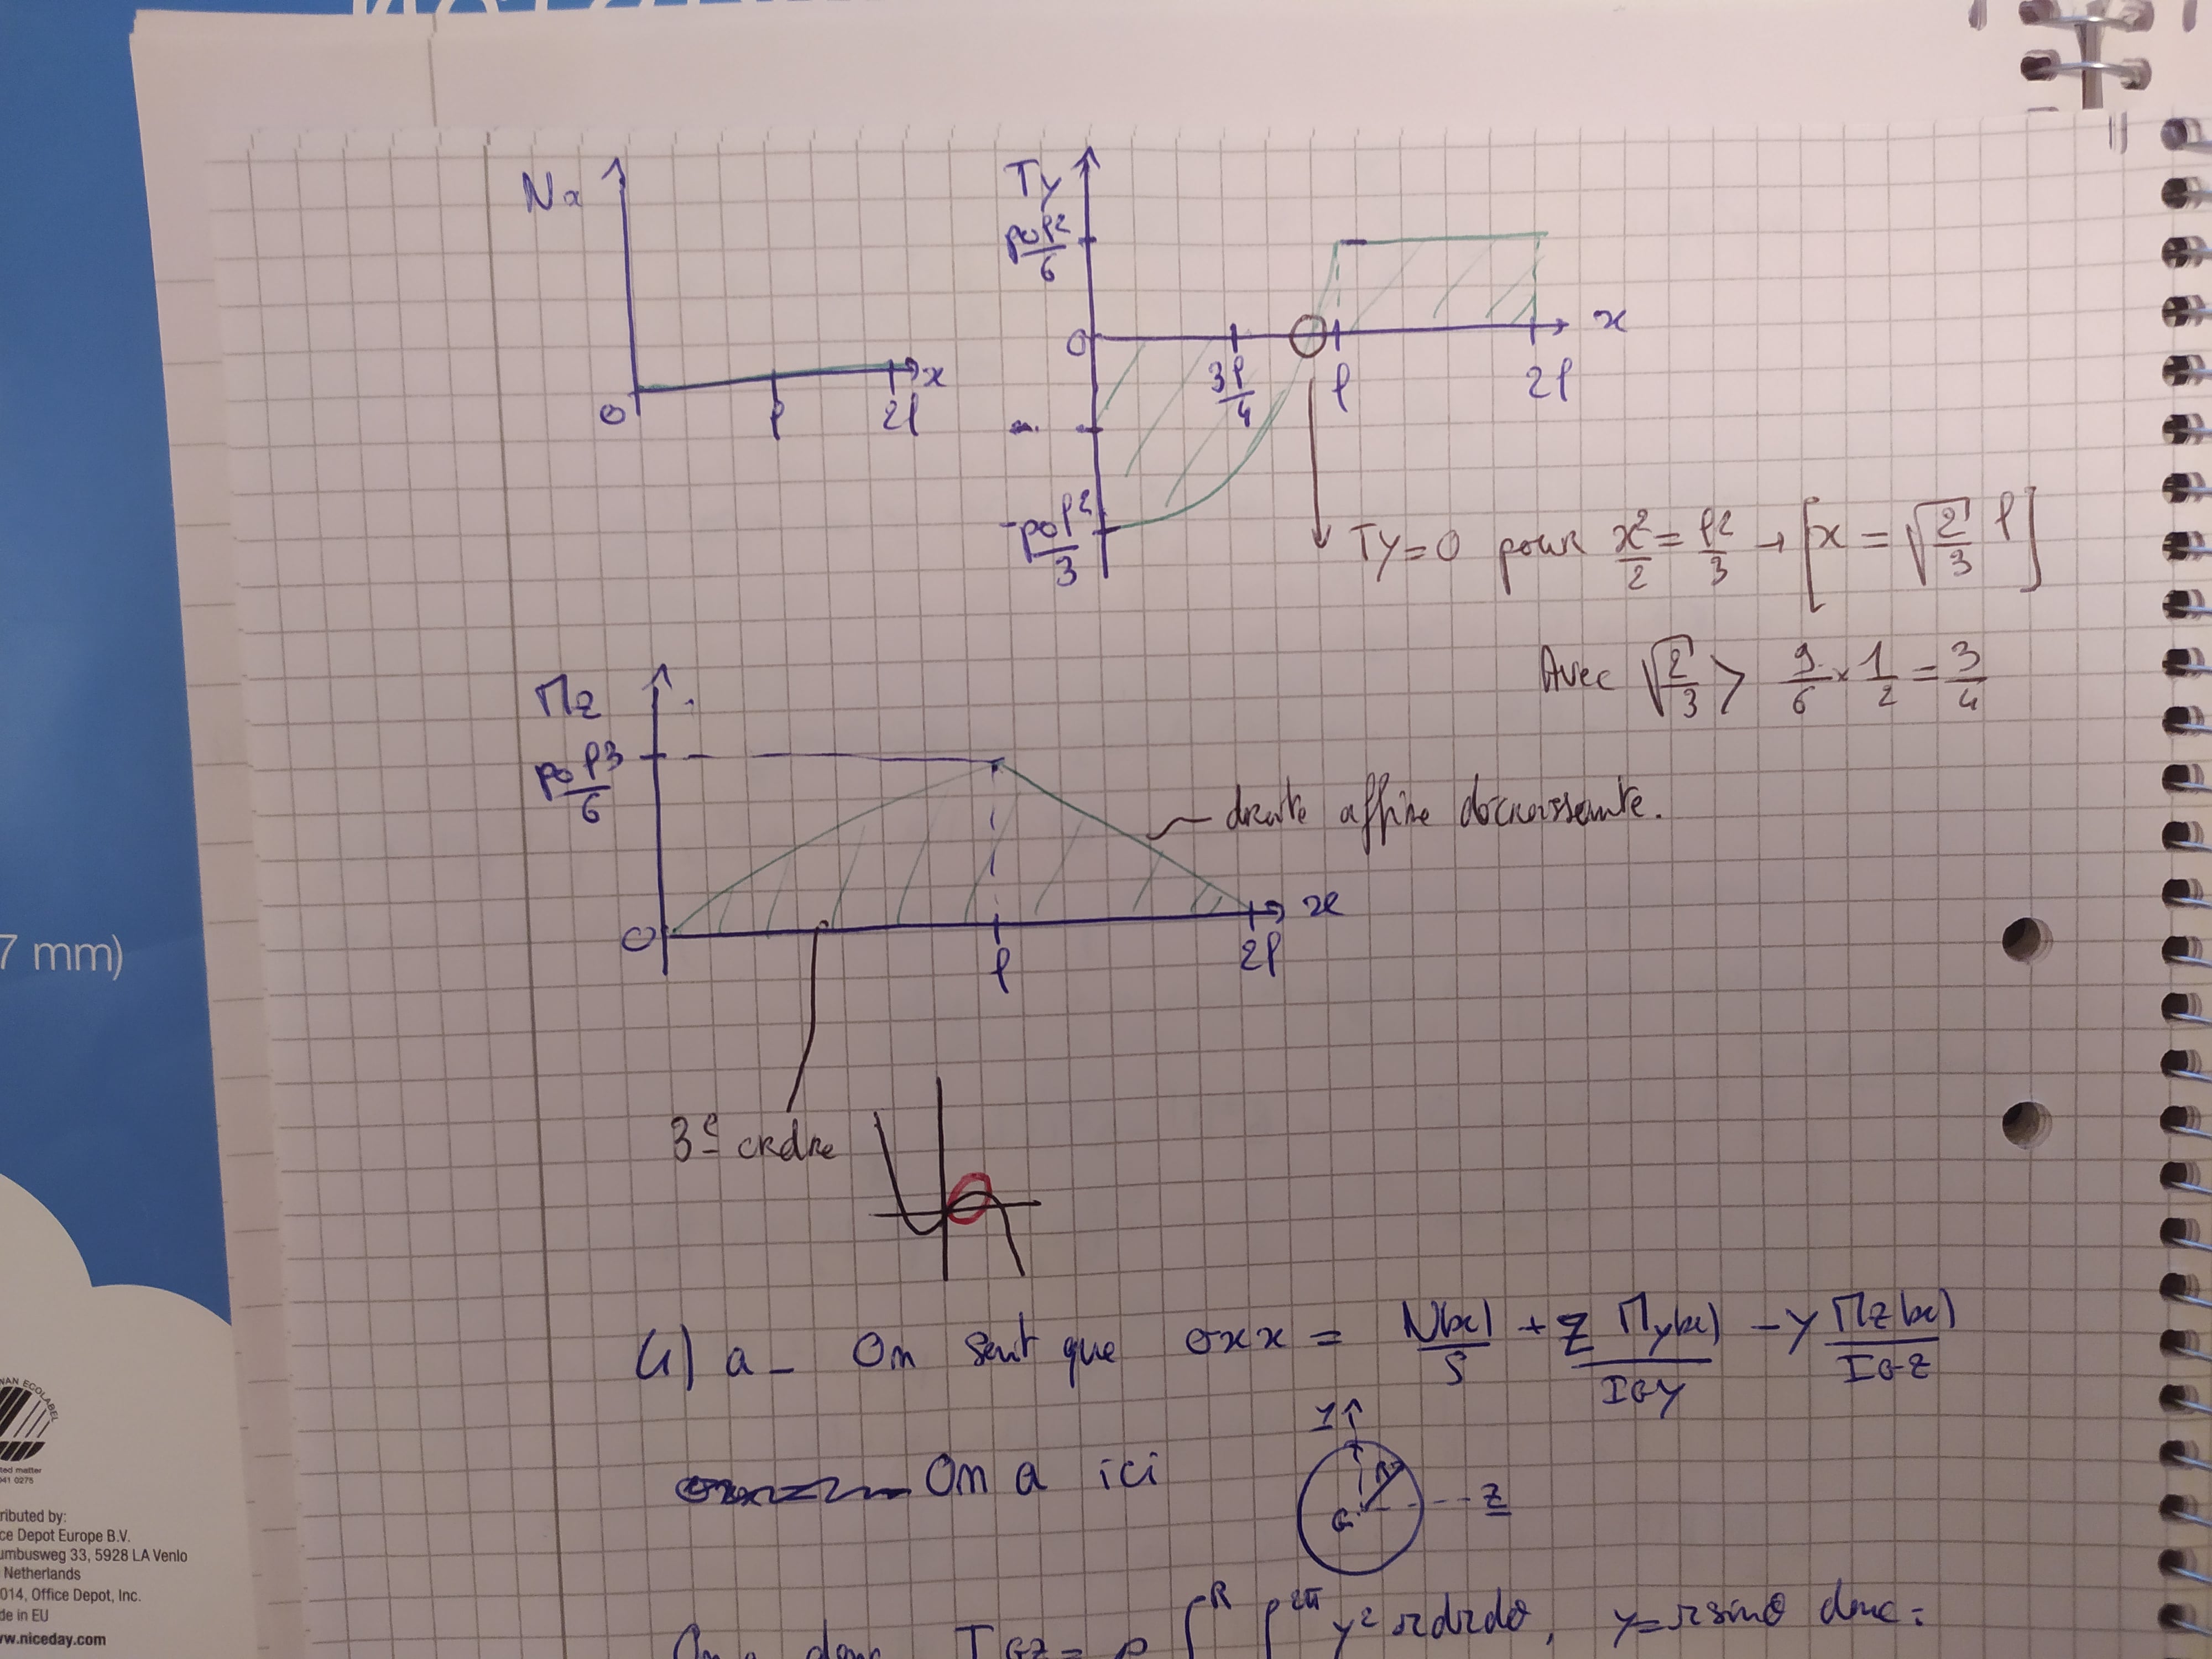 Nx
0 l 2l x
Ty
pol²/6
0 3l/4 l 2l x
-pol²/3
Ty=0 pour x²/2 = l²/3 → [x = √(2/3) l]
Avec √(2/3) > 9/6 × 1/2 = 3/4
Mz
pol³/6
droite affine décroissante.
0 l 2l x
3e ordre
4) a- On sait que σxx = N(x)/S + z My(x)/IGy - y Mz(x)/IGz
On a ici
y
R
G z
On a donc IGz = ρ ∫^R ∫^2π y² r dr dθ, y=r sinθ donc:
7 mm)
WAN ECOLABEL
ted matter
041 0275
ributed by:
ce Depot Europe B.V.
umbusweg 33, 5928 LA Venlo
Netherlands
014, Office Depot, Inc.
de in EU
ww.niceday.com